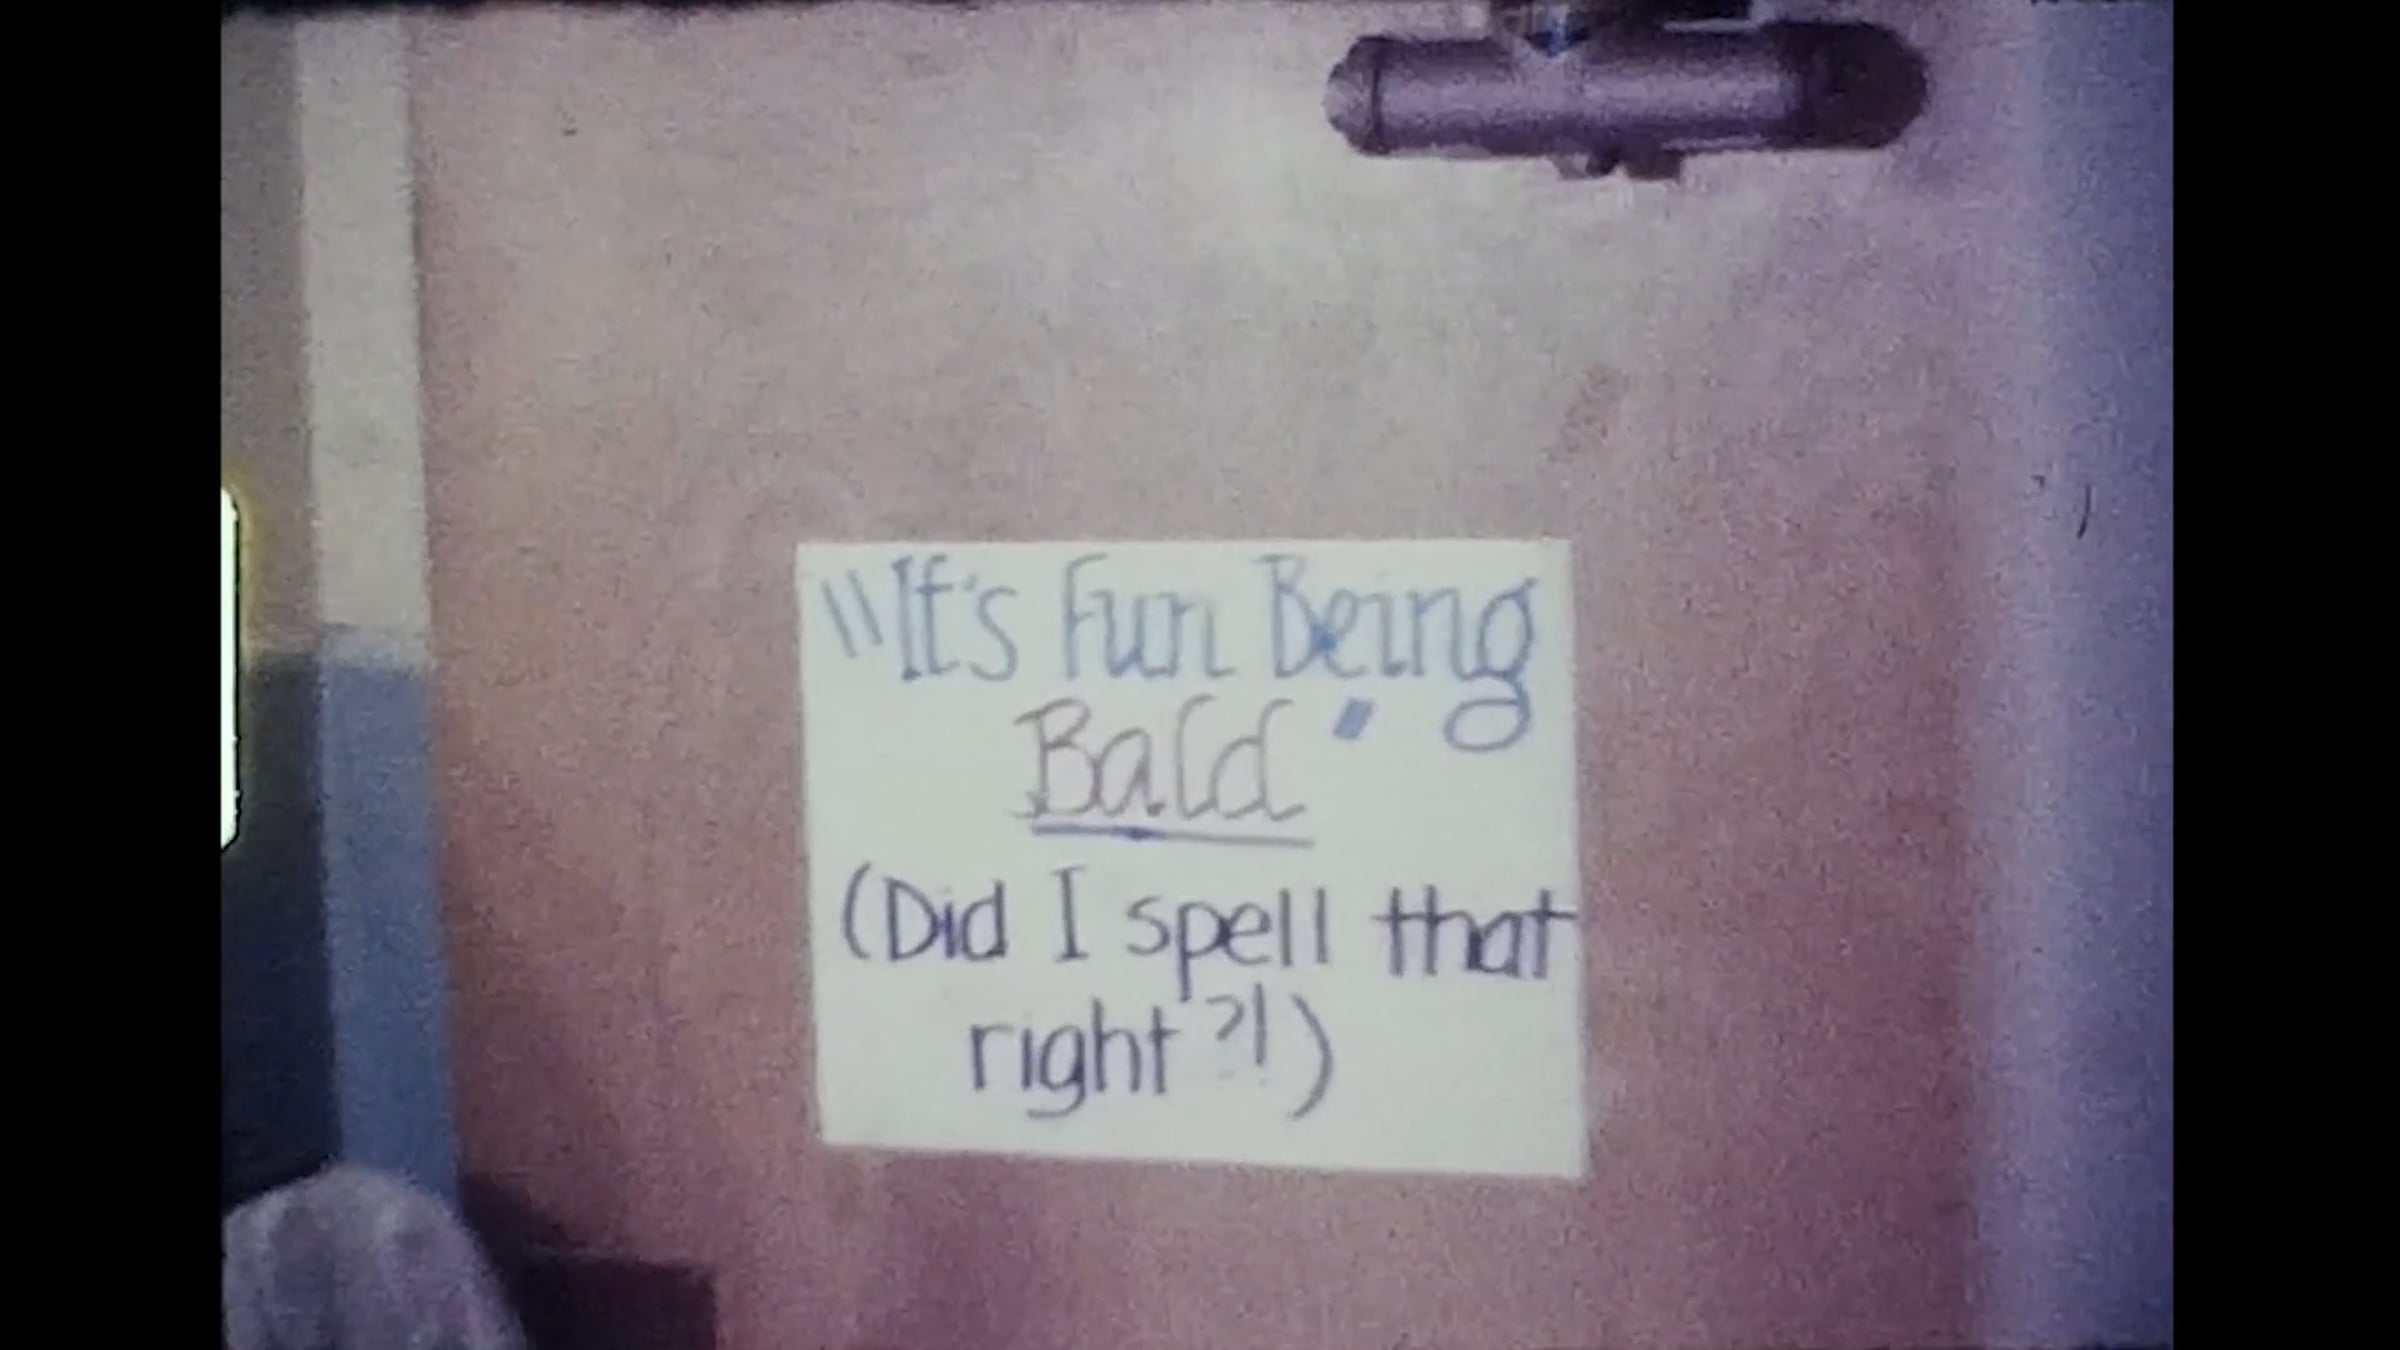 "It's Fun Being
Bald"
(Did I spell that
right?!)